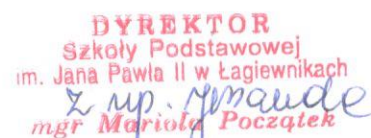 DYREKTOR
Szkoły Podstawowej
im. Jana Pawła II w Łagiewnikach
z up.
mgr Mariola Początek